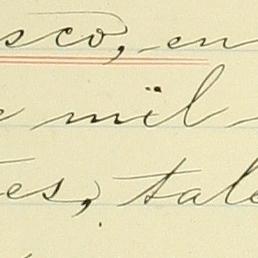 sco, en
e mil
tes, tale